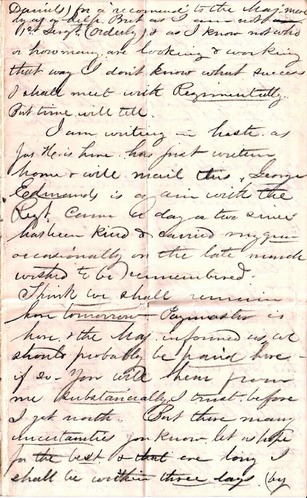 Daniels) for a recommend to the Maj.
as a help But as I am not
1st Sergt (Orderly) & as I know not who
or how many are looking & working
that way I don't know what success
I shall meet with Regimentally.
But time will tell.
I am writing in haste as
is here has just written
home & will mail this. George
Edmands is again with the
Regt. Came a day or two since
has been kind & carried my gun
occasionally on the late march
wished to be remembered.
I think we shall remain
here tomorrow. Paymaster is
here, & the Maj. informed us, we
should probably be paid here -
if so You will hear from
me substancially I trust before
I get north. But there many
uncertanties You know, let us hope
for the best & that ere long I
shall be within three days (by